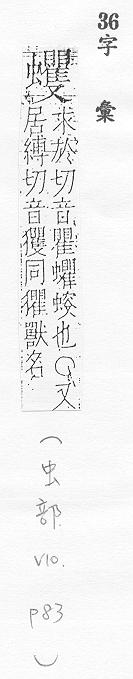 36字彙
蠼
求於切音瞿蠼螋也○又
居縛切音玃同玃獸名
(虫部 v10. p83)